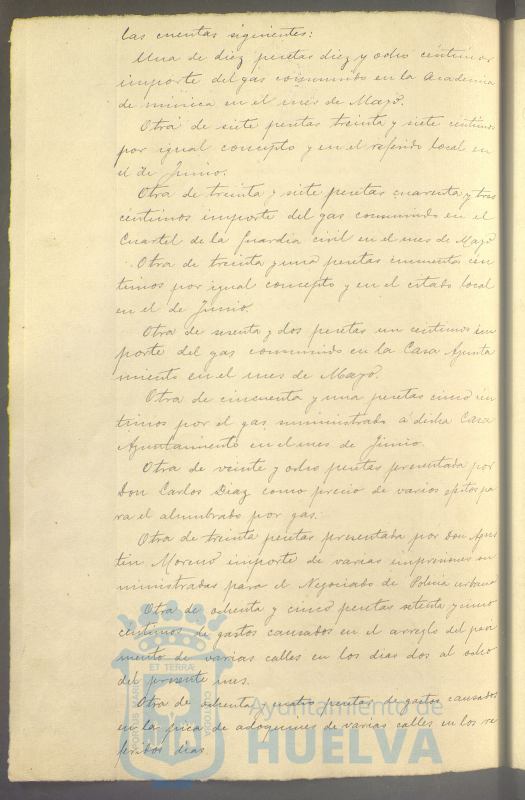 las cuentas siguientes:
Una de diez pesetas diez y ocho céntimos
importe del gas consumido en la Academia
de música en el mes de Mayo.
Otra de siete pesetas treinta y siete céntimos
por igual concepto y en el referido local en
el de Junio.
Otra de treinta y siete pesetas cuarenta y tres
centimos importe del gas consumido en el
Cuartel de la Guardia civil en el mes de Mayo
Otra de treinta y una pesetas cen
timos por igual concepto y en el citado local
en el de Junio.
Otra de sesenta y dos pesetas un centimos im
porte del gas consumido en la Casa Ayunta
miento en el mes de Mayo.
Otra de cincuenta y una pesetas cinco cen
timos por el gas suministrado á dicha Casa
Ayuntamiento en el mes de Junio.
Otra de veinte y ocho pesetas presentada por
Don Carlos Diaz como precio de varios efectos pa
ra el alumbrado por gas.
Otra de treinta pesetas presentada por Don Agus
tin Moreno importe de varias impresiones su
ministradas para el Negociado de Policia urbana
Otra de ochenta y cinco pesetas setenta y uno
céntimos de gastos causados en el arreglo del pavi
mento de varias calles en los dias dos al ocho
del presente mes.
Otra de ochenta y cuatro pesetas de gastos causados
en la pica de adoquines de varias calles en los re
feridos dias
PORTUS MARIS
ET TERRAE
CUSTODIA
Ayuntamiento de
HUELVA